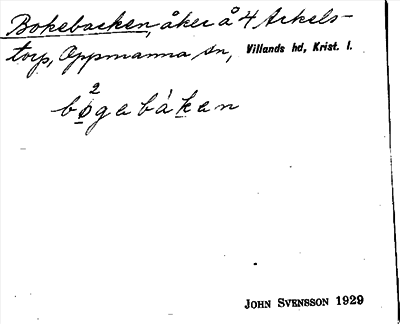 Bokebacken, åker å 4 Arkels-
torp, Oppmanna sn, Villands hd, Krist. l.
2
bøgabàkan
JOHN SVENSSON 1929